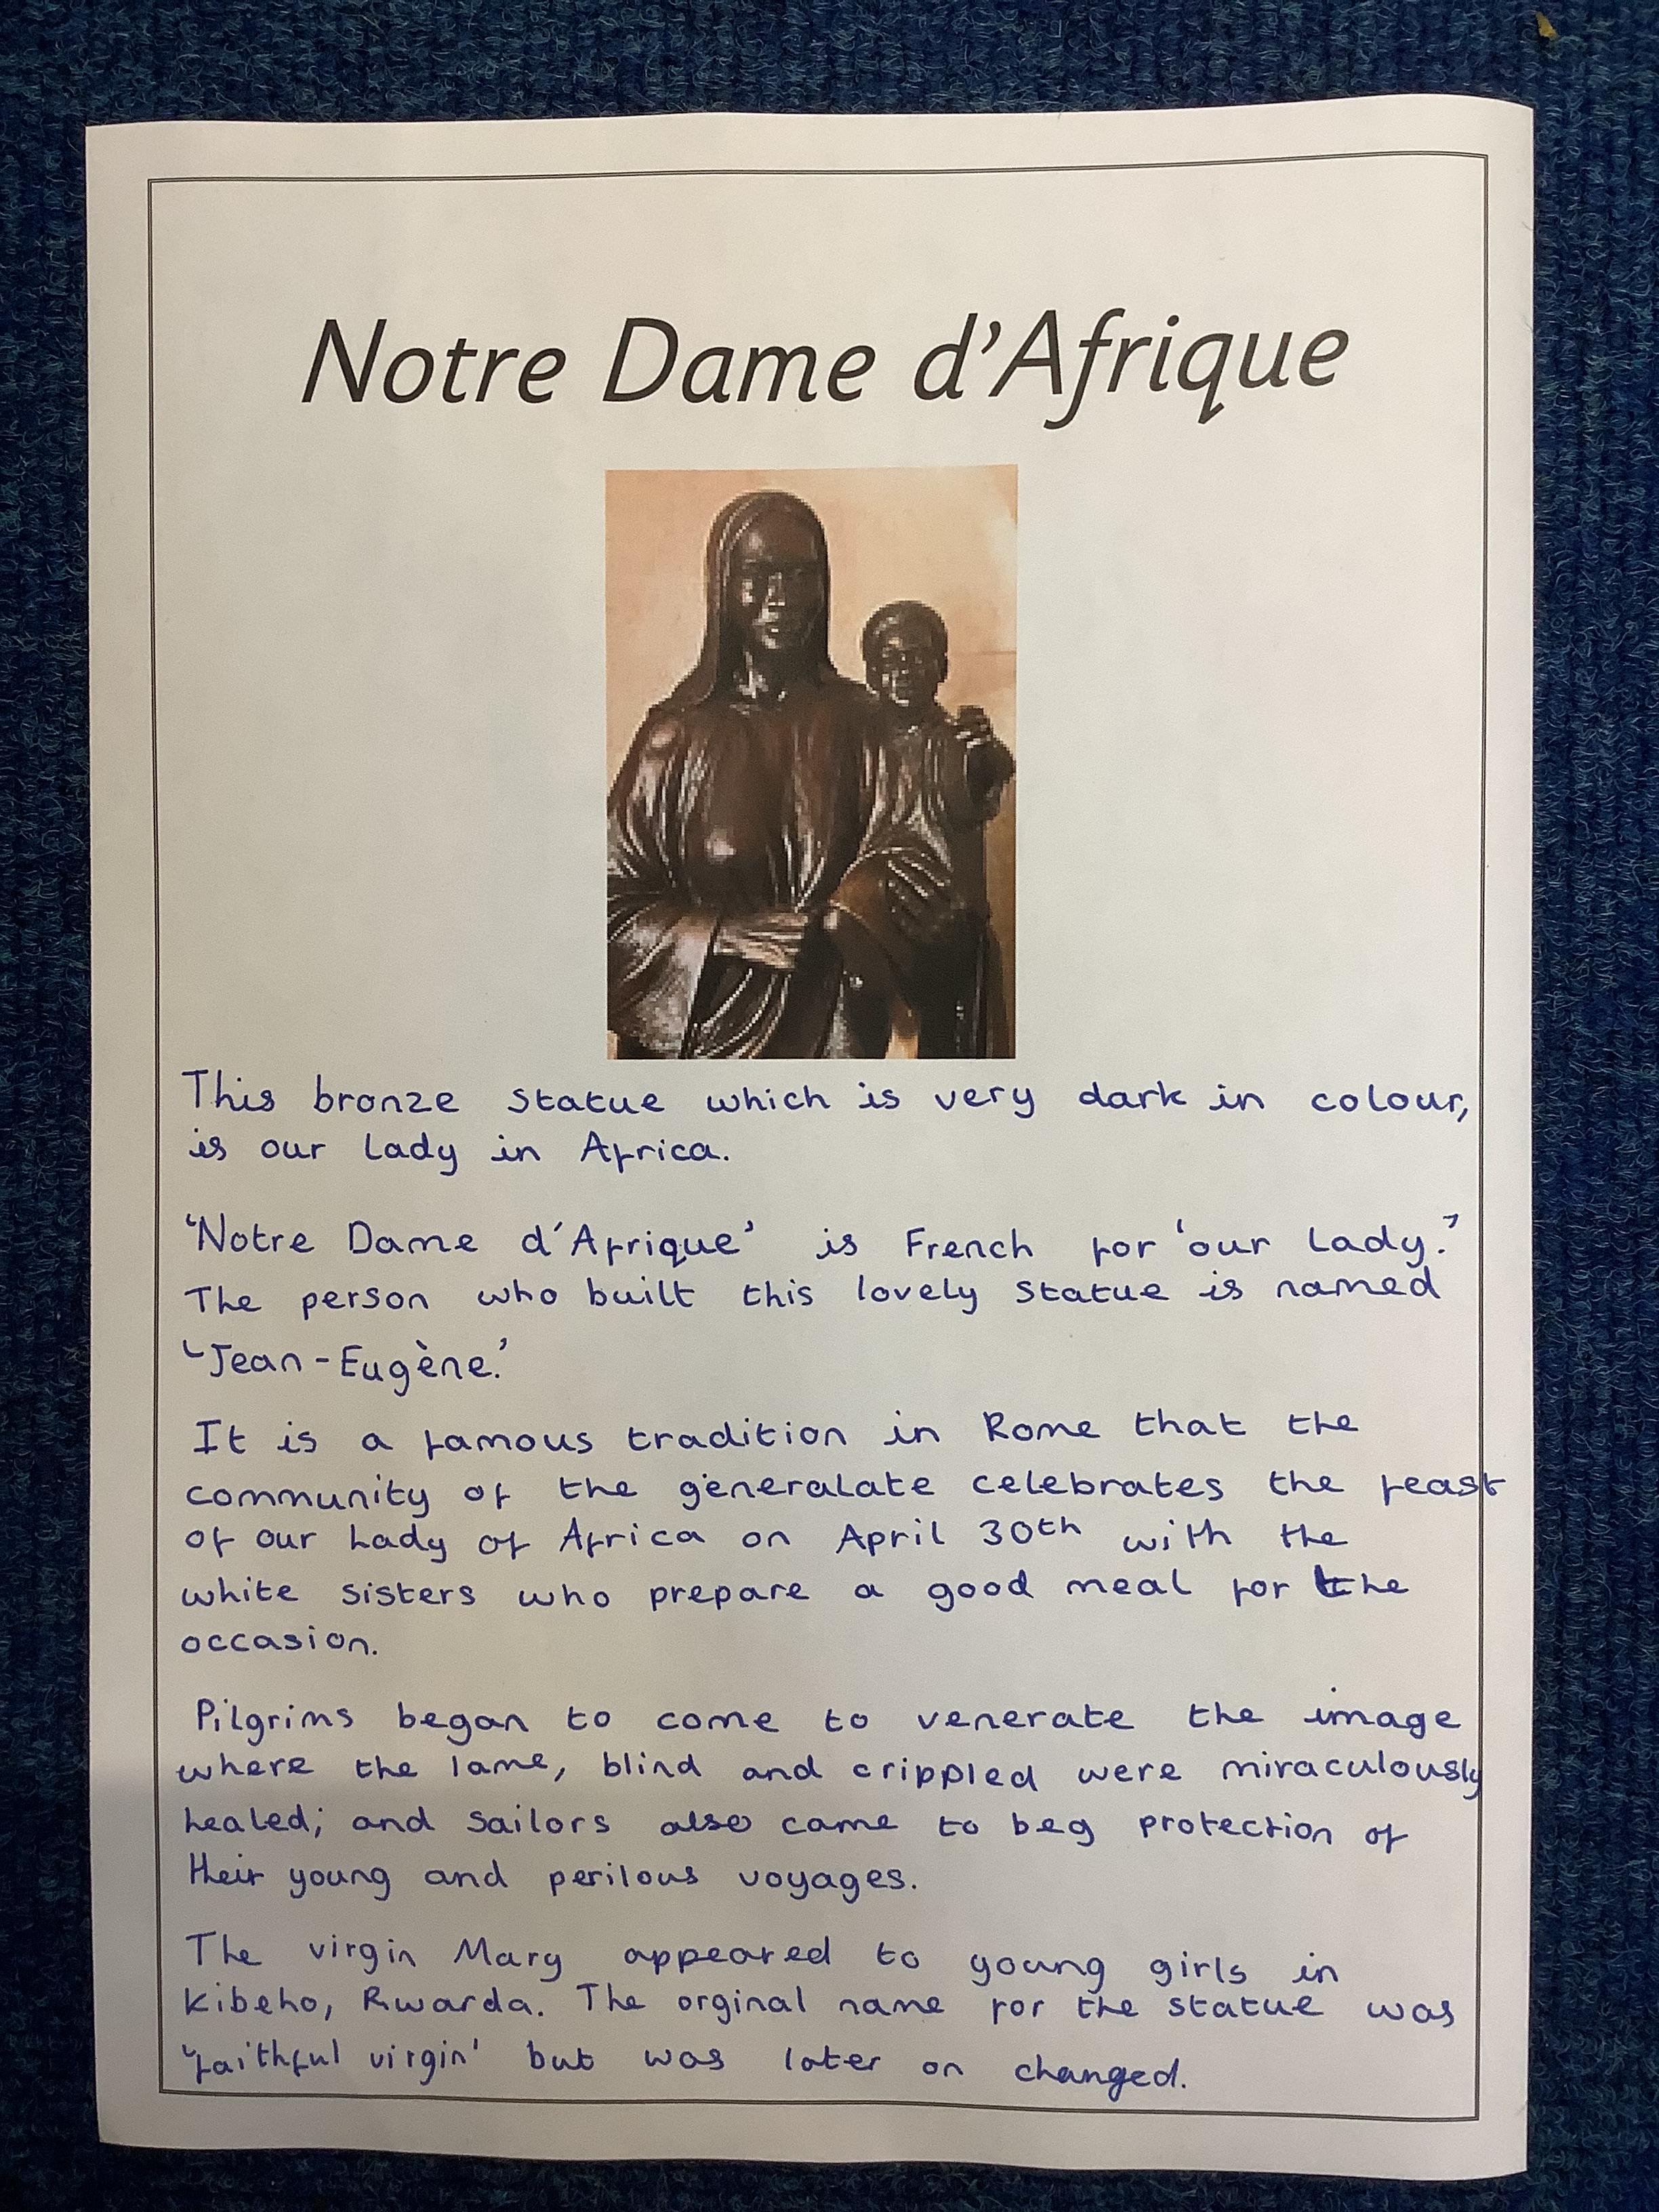 Notre Dame d'Afrique
This bronze statue which is very dark in colour,
is our lady in Africa.
'Notre Dame d'Afrique' is French for 'our lady.'
The person who built this lovely statue is named
'Jean-Eugène.'
It is a famous tradition in Rome that the
community of the generalate celebrates the feast
of our Lady of Africa on April 30th with the
white sisters who prepare a good meal for the
occasion.
Pilgrims began to come to venerate the image
where the lame, blind and crippled were miraculously
healed; and sailors also came to beg protection of
their young and perilous voyages.
The virgin Mary appeared to young girls in
Kibeho, Rwarda. The orginal name for the statue was
'faithful virgin' but was later on changed.